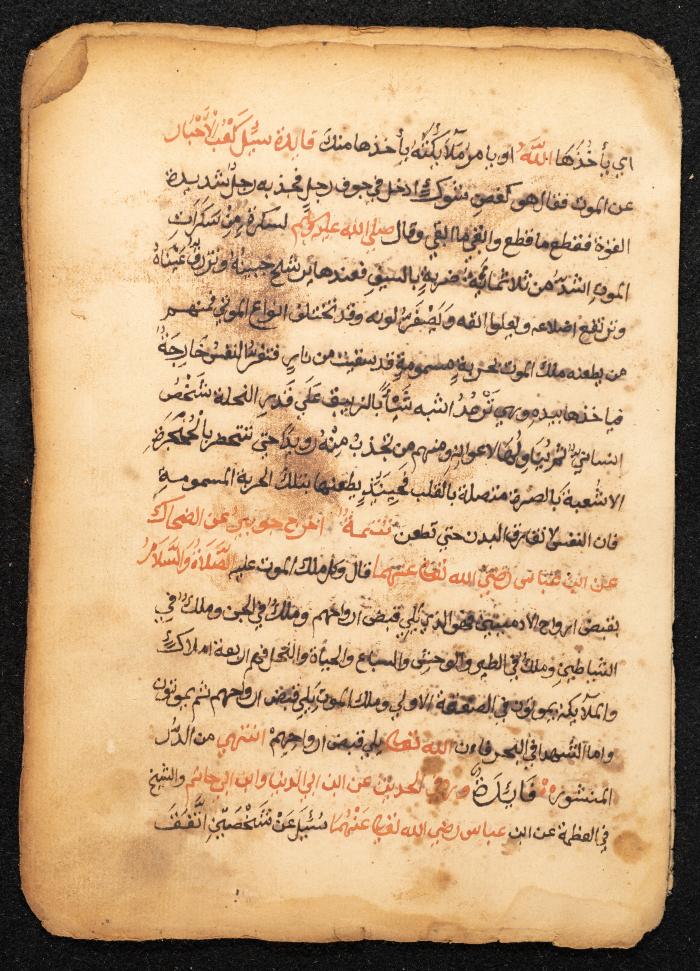 اي يأخُذُهَا اللَّهُ او يامر مَلَآئِكَتُهُ يأخذها منك فايدة سُئِلَ كَعْبُ الْاَحْبَار
عن الموت فقال هو كغصنِ شوكٍ ادخل في جوف رجلٍ فجذبه رجلٌ شديدة
القوة فقطع ما قطع وابقي ما ابقي وقال صلي الله عليه وسلم لسكرةٌ مِنْ سَكَرَاتِ
الموت اشدّ من ثلاثمائة ضربةٍ بالسيف فعندها يرشح جبينهُ وتزرقُ عيناهُ
وترتفع اضلاعه ويعلوا نفسه وَيَصْفَرُّ لونه وقد تختلف انواع الموتي فمنهم
من يطعنه ملك الموت بحربةٍ مسمومةٍ قد سقيت من نارٍ فتفرّ النفسُ خَارِجَةً
فياخذها بيده وهي تَرْعدُ اشبه شَيْأً بالزيبق عَلَي قَدرِ النحلة شَخْصٌ
انسانيٌّ ثم يناولها الاعوان ومنهم من تُجذب مِنْهُ رويدًا حتي تنحصر بِالْحَنْجَرَةِ
الا شعبة بالصرة متصلة بالقلب فَحِينَئِذٍ يطعنها بتلك الحربة المسمومةِ
فان النفس لا تفارق البدن حتي تطعن تَتِمَّةٌ اخرج جويبر عن الضحاك
عن ابن عباس رضي الله تعالي عنهما قال وكل ملك الموت عليه الصَّلَاةُ وَالسَّلَامُ
بقبض ارواح الادميين فهو الذي يلي قبض ارواحهم وملكٌ في الجن وملكٌ في
الشياطين وملكٌ في الطير والوحش والسباع والحياة والنمل فهم اربعة املاكٍ
والملآيكة يموتون في الصعقة الاولي وملك الموت يلي قبض ارواحهم ثم يموتون
واما الشهدا في البحر فان الله تعالي يلي قبض ارواحهم انتهي من الدُّرر
المنشورة فَايِدَةٌ وروي الحديث عن ابن ابي الدنيا وابن ابي حاتم والشيخ
في العظمة عن ابن عباس رضي الله تعالي عَنْهُمَا سُئِلَ عَنْ شَخْصَيْنِ اتَّفَقَ